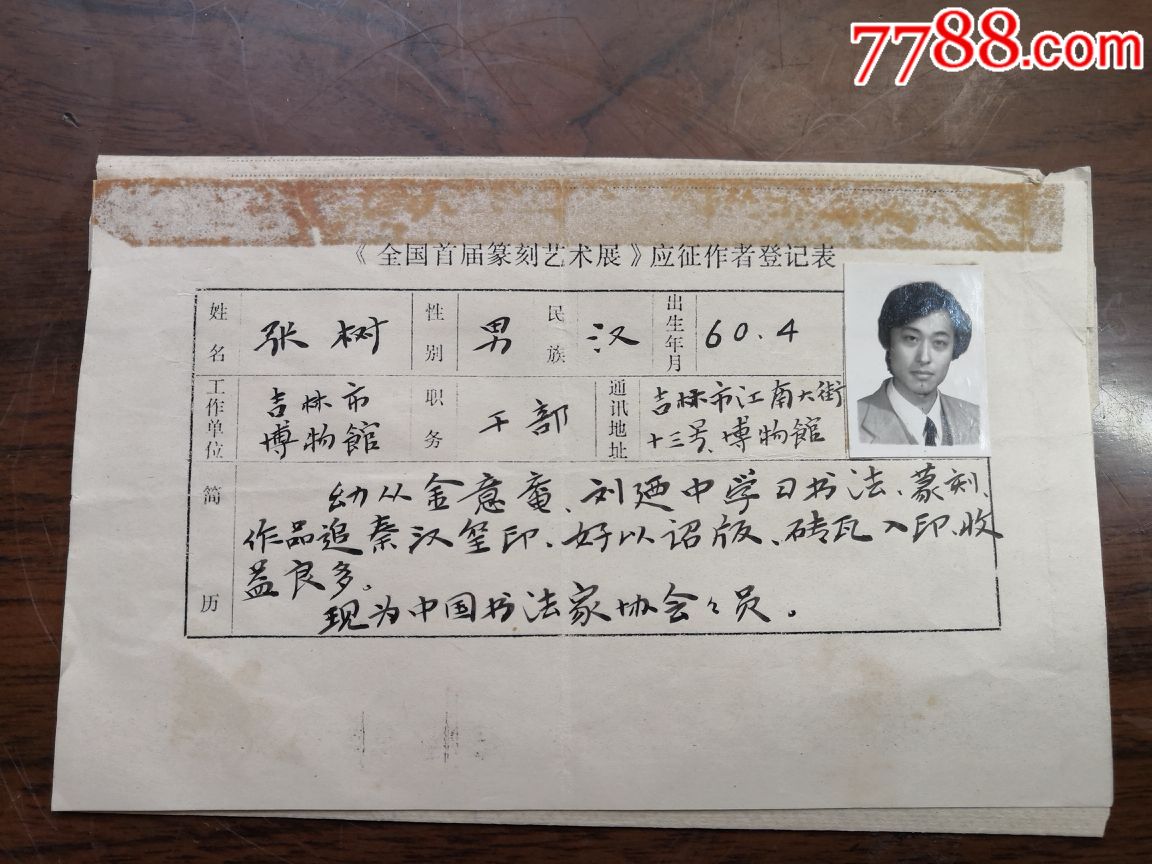 7788.com
《全国首届篆刻艺术展》应征作者登记表
姓名 张树 性别 男 民族 汉 出生年月 60.4
工作单位 吉林市博物館 职务 干部 通讯地址 吉林市江南大街十三号、博物館
简历
幼从金意庵、刘廼中学习书法、篆刻、
作品追秦汉玺印、好以诏版、砖瓦入印、收
益良多。
现为中国书法家协会々员。